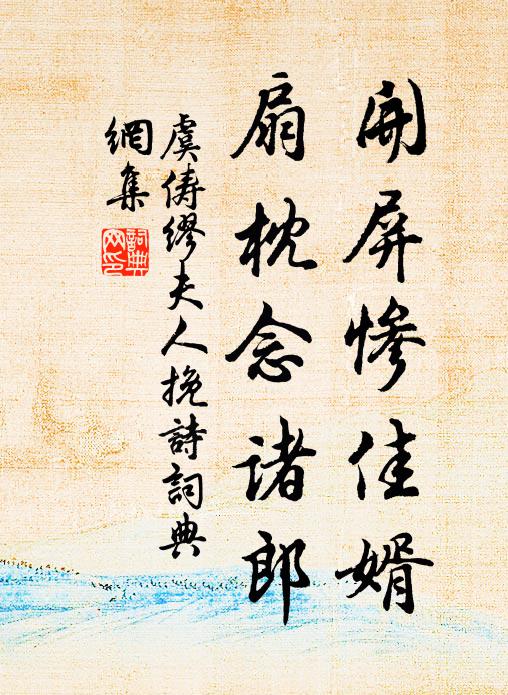 開屏慘佳婿
扇枕念诸郎
虞俦繆夫人挽詩詞典
網集
詞典
网印